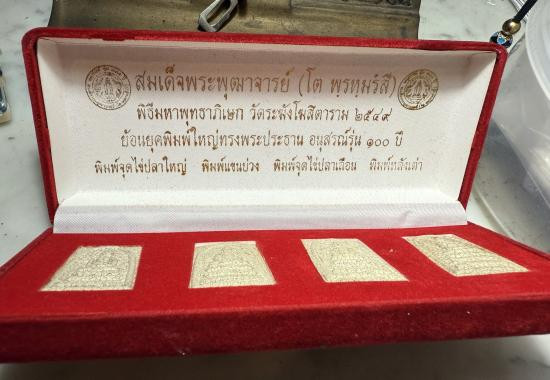 สมเด็จพระพุฒาจารย์ (โต พฺรหฺมรํสี)
พิธีมหาพุทธาภิเษก วัดระฆังโฆสิตาราม ๒๕๔๙
ย้อนยุคพิมพ์ใหญ่ทรงพระประธาน อนุสรณ์รุ่น ๑๐๐ ปี
พิมพ์จุดไข่ปลาใหญ่ พิมพ์แขนบ่วง พิมพ์จุดไข่ปลาเลือน พิมพ์หลังเต่า